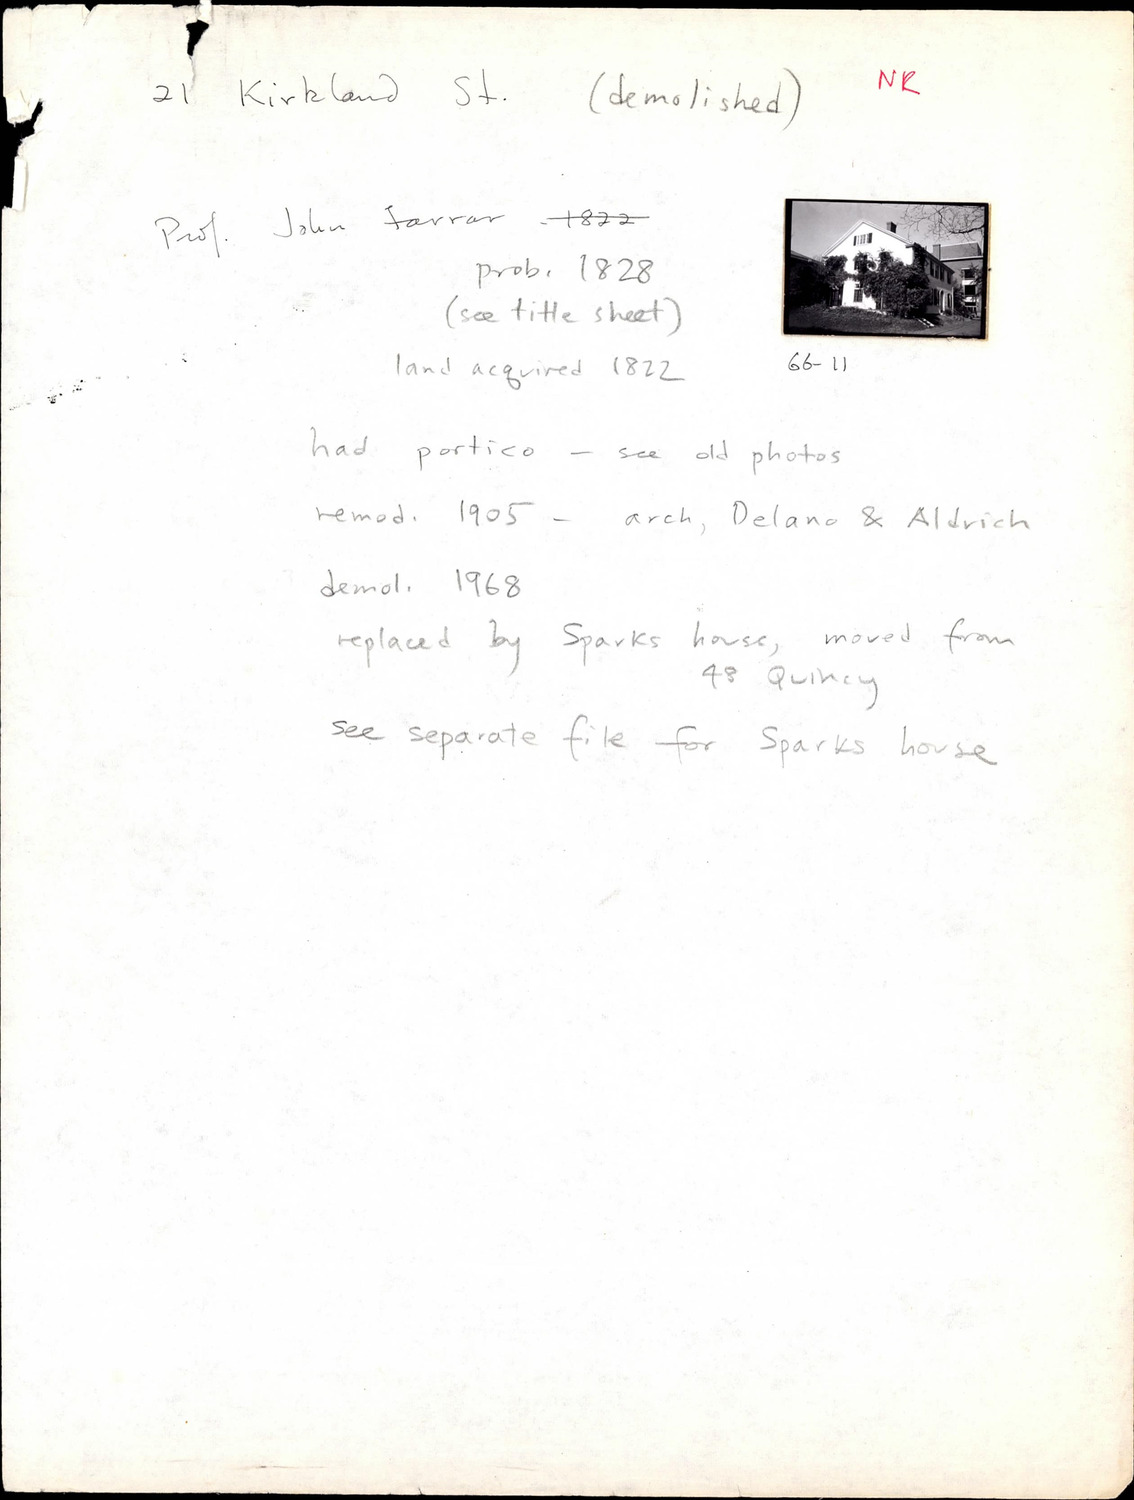 21 Kirkland St. (demolished) NR
Prof. John Farrar 1822
prob. 1828
(see title sheet)
land acquired 1822
66-11
had portico – see old photos
remod. 1905 – arch, Delano & Aldrich
demol. 1968
replaced by Sparks house, moved from
48 Quincy
see separate file for Sparks house